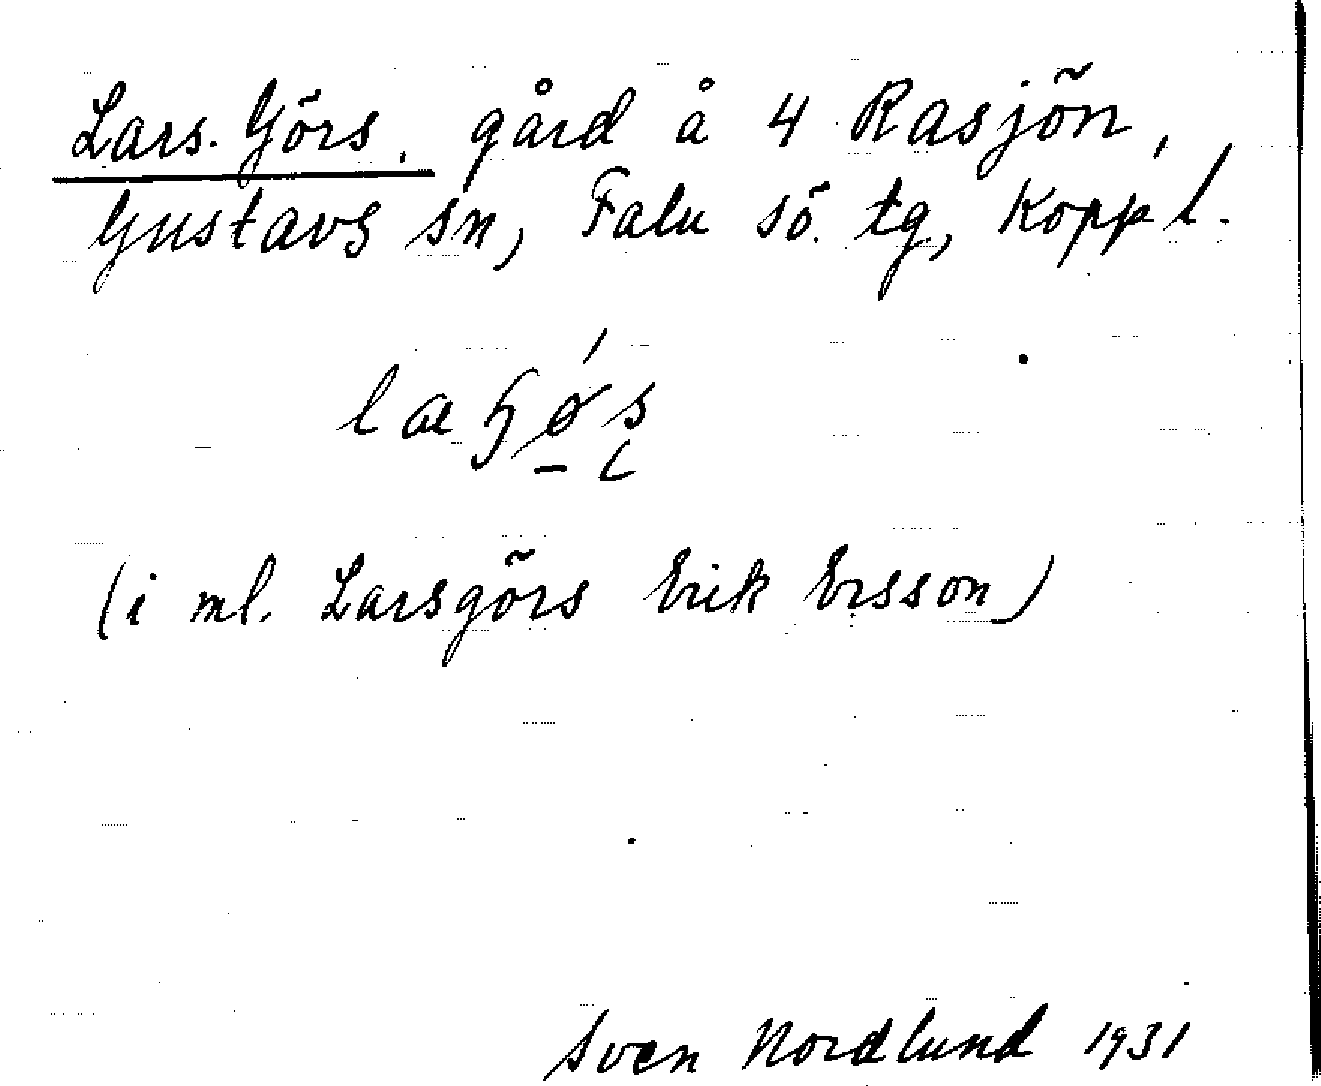 Lars. Görs, gård å 4 Rasjön,
Gustavs sn, Falu sö. tg, Koppl.
(i ml. Larsgörs Erik Ersson)
Sven Nordlund 1931